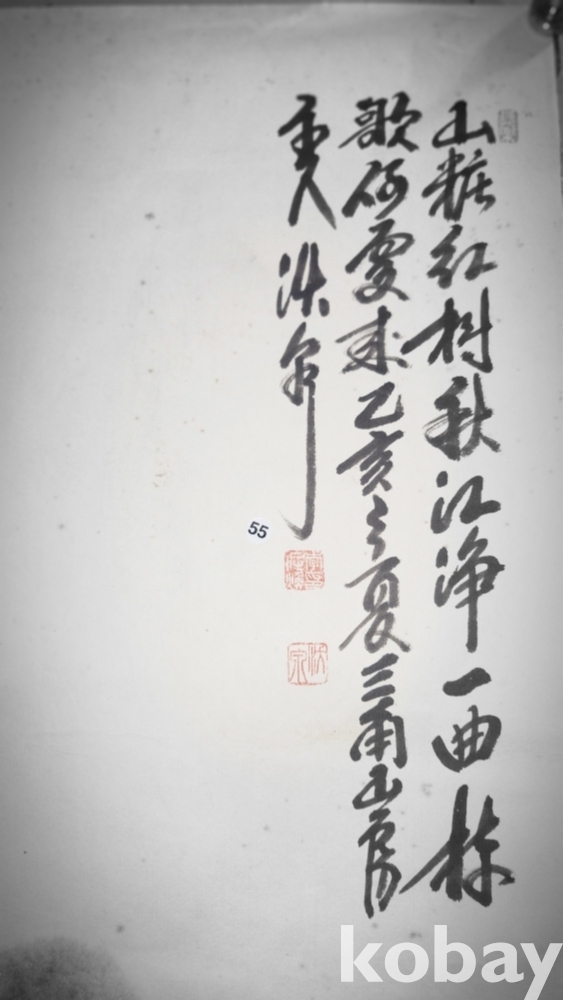 山粧紅樹秋江淨一曲棹
歌何處来乙亥之夏三山房
主人
55
kobay